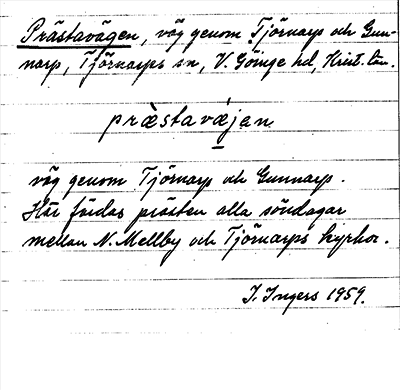 Prästavägen, väg genom Tjörnarp och Gun-
narp, Tjörnarps sn, V. Göinge hd, Krist. län.
prästavä́jen
väg genom Tjörnarp och Gunnarp.
Här fördas prästen alla söndagar
mellan N. Mellby och Tjörnarps kyrkor.
I. Ingers 1959.